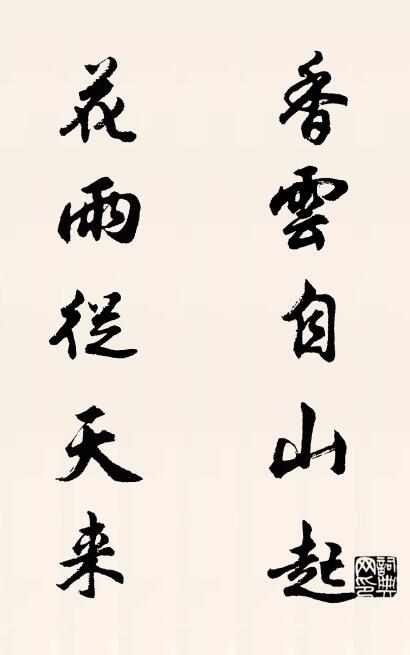 香雲自山起
花雨從天来
詞典网印